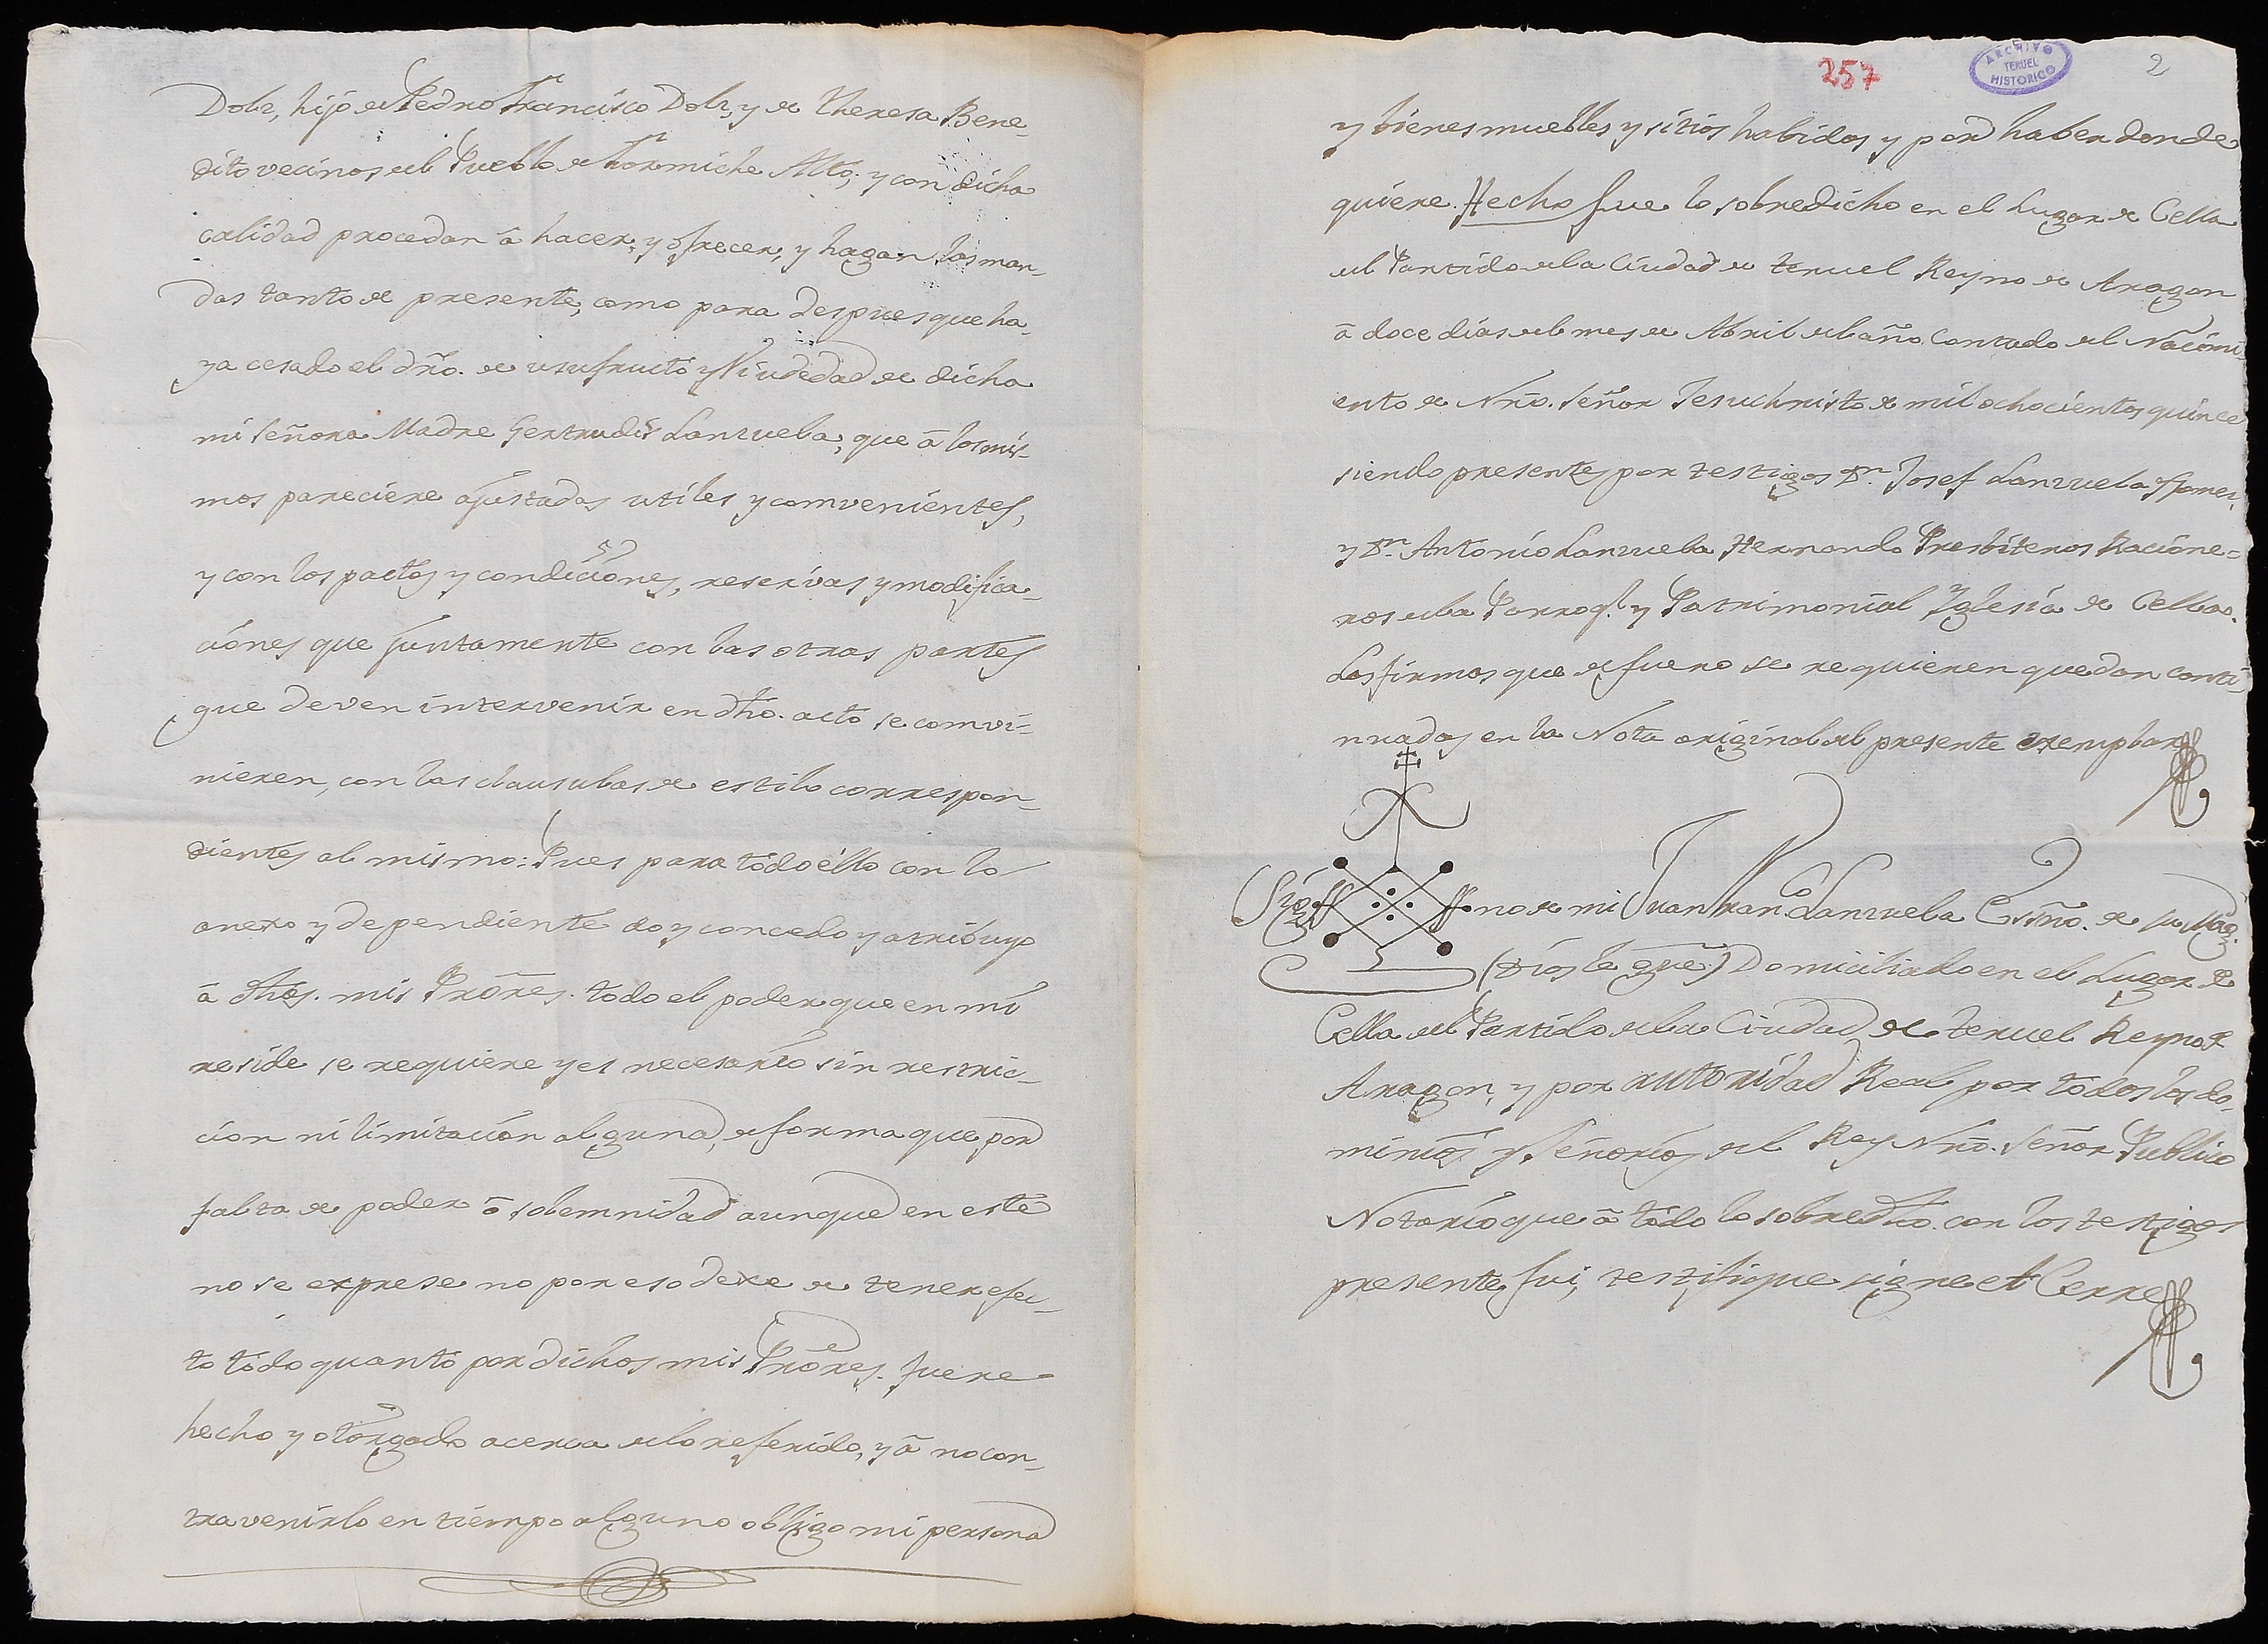 Dolz, hijo de Pedro Francisco Dolz, y de Theresa Bene-
dito vecinos del Pueblo de Formiche Alto; y con dicha
calidad procedan â hacer, y ofrecer, y hagan las man-
das tanto de presente, como para despues que ha-
ya cesado el dřo. de usufructo y Viudedad de dicha
mi señora Madre Gertrudis Lanzuela, que â los mis-
mos pareciere ajustadas utiles y comvenientes,
y con los pactos y condiciones, reservas y modifica-
ciones que juntamente con las otras partes
que deven intervenir en dĥo. acto se comvi-
nieren, con las clausulas de estilo correspon-
dientes al mismo: Pues para tódo éllo con lo
anexo y dependiente doy concedo y atribuyo
â dĥos. mis Prŏres. todo el poder que en mi
reside se requiere y es necesario sin restric-
cion ni limitacion alguna, de forma que por
falta de poder ô solemnidad aunque en este
no se exprese no por eso dexe de tener efec-
to tódo quanto por dichos mis Prŏres. fuere
hecho y otorgado acerca de lo referido, y â no con-
travenirlo en tiempo alguno obligo mi persona
257
ARCHIVO
TERUEL
HISTORICO
2
y bienes muebles y sitios habidos y por haber donde
quiere. Hecho fue lo sobredicho en el Lugar de Cella
del Partido de la Ciudad de Teruel Reyno de Aragon
â doce dias del mes de Abril del año Contado del Nacimi-
ento de Nrõ. Señor Jesuchristo de mil ochocientos quince
siendo presentes por testigos Dn. Josef Lanzuela Gomez,
y Dn. Antonio Lanzuela Hernando Presbiteros Racione-
ros de la Parroql. y Patrimonial Yglesia de Cella.
Las firmas que de fuero se requieren quedan conti-
nuadas en la Nota original del presente exemplar
Sig no de mi Juan Franco. Lanzuela Essno. de su Mag.
(Dios le gue.) Domiciliado en el Lugar de
Cella del Partido de la Ciudad de Teruel Reyno de
Aragon, y por autoridad Real por todos los do-
minios y señorios del Rey Nrõ. Señor Publico
Notario que â tódo lo sobredĥo. con los testigos
presente fui, testifique signe et Cerre